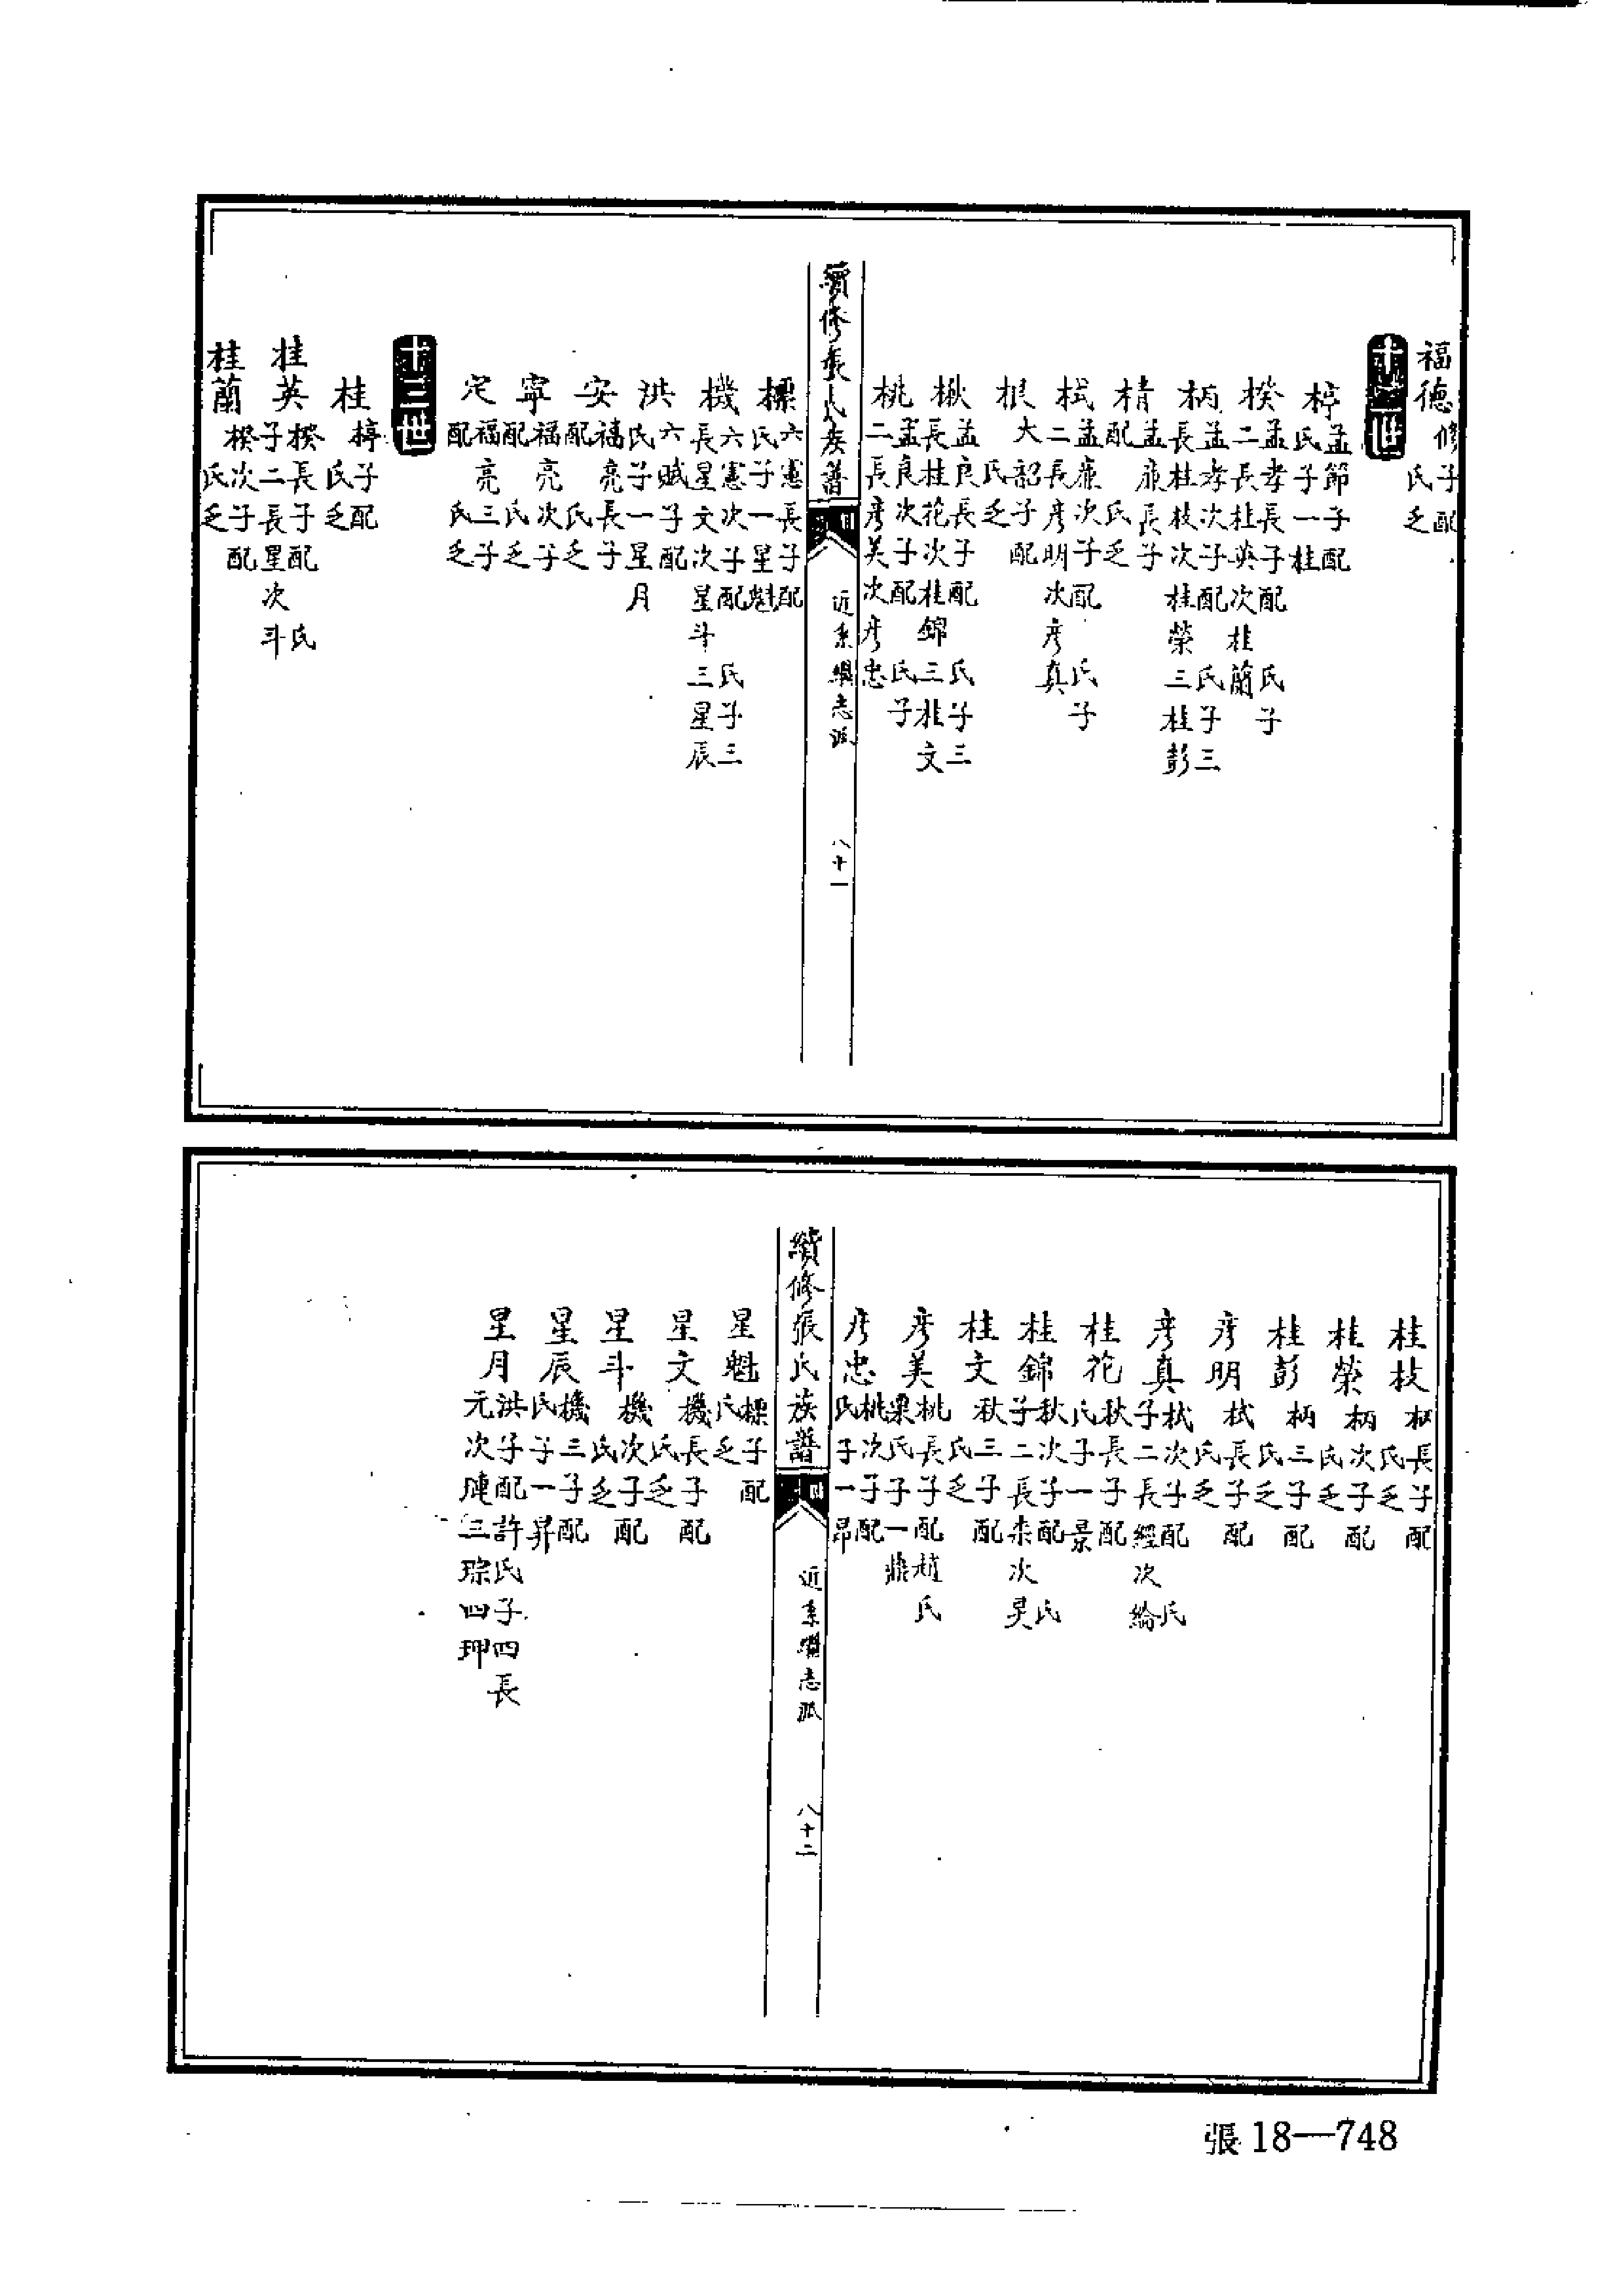 福德修子配
氏乏
十二世
楟孟節子配
氏子一桂
楑孟孝長子配 氏子
二長桂英次桂蘭
柄孟孝次子配 氏子三
長桂枝次桂榮三桂彭
棈孟㢘長子
配 氏乏
栻孟㢘次子配 氏子
二長彥明次彥真
根大韶子配
氏乏
楸孟良長子配 氏子三
長桂花次桂錦三桂文
桃孟良次子配 氏子
二長彥美次彥忠
續修張氏族譜
近系
志派
八十一
標六憲長子配
氏子一星魁
機六憲次子配 氏子三
長星文次星斗三星辰
洪六賦子配
氏子一星月
安福亮長子
配 氏乏
寧福亮次子
配 氏乏
定福亮三子
配 氏乏
十三世
桂楟子配
氏乏
桂英楑長子配 氏
子二長星次斗
桂蘭楑次子配
氏乏
桂枝柄長子配
氏乏
桂榮柄次子配
氏乏
桂彭柄三子配
氏乏
彥明栻長子配
氏乏
彥真栻次子配 氏
子二長經次綸
桂花秋長子配
氏子一景
桂錦秋次子配 氏
子二長杰次炅
桂文秋三子配
氏乏
彥美桃長子配趙氏
栗氏子一鼎
彥忠桃次子配
氏子一昂
續修張氏族譜
近系
志派
八十二
星魁標子配
氏乏
星文機長子配
氏乏
星斗機次子配
氏乏
星辰機三子配
氏子一昇
星月洪子配許氏子四長
元次璉三琮四珅
張18—748